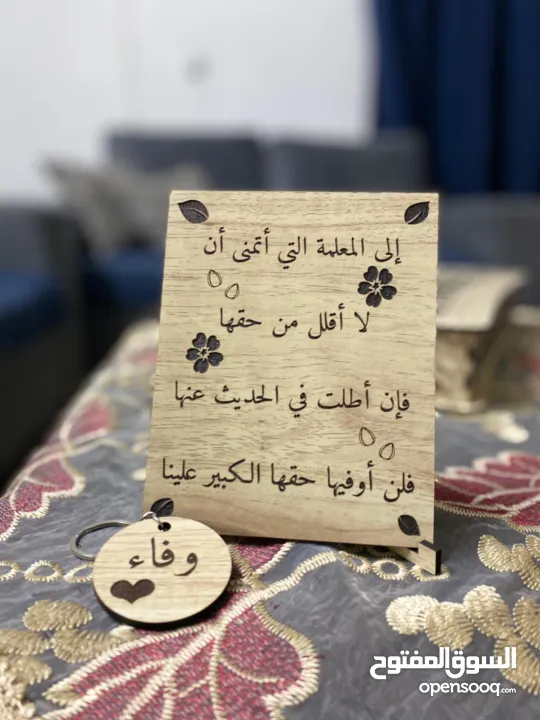 إلى المعلمة التي أتمنى أن
لا أقلل من حقها
فإن أطلت في الحديث عنها
فلن أوفيها حقها الكبير علينا
وفاء
السوق المفتوح
opensooq.com